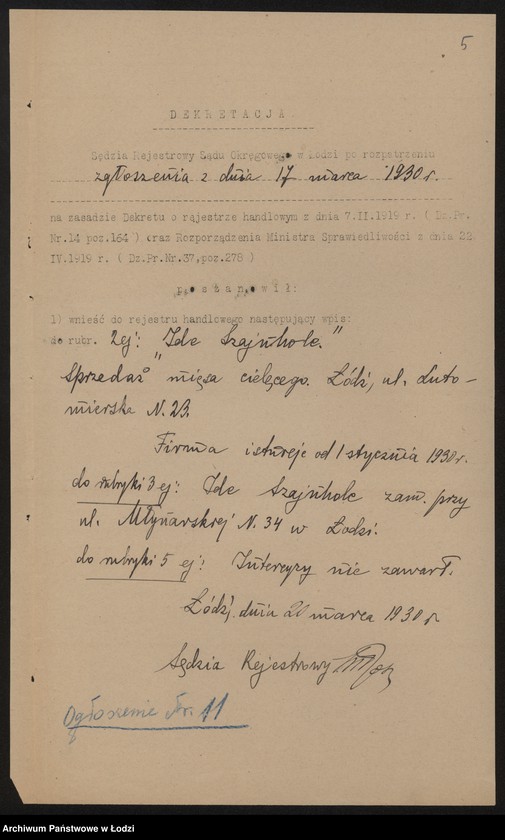 5
DEKRETACJA.
Sędzia Rejestrowy Sądu Okręgowego w Łodzi po rozpatrzeniu
zgłoszenia z dnia 17 marca 1930 r.
na zasadzie Dekretu o rejestrze handlowym z dnia 7.II.1919 r. ( Dz.Pr.
Nr.14 poz.164 ) oraz Rozporządzenia Ministra Sprawiedliwości z dnia 22
IV.1919 r. ( Dz.Pr.Nr.37,poz.278 )
postanowił:
1) wnieść do rejestru handlowego następujący wpis:
do rubr. 2ej: "Ide Szajnholc."
Sprzedaż mięsa cielęcego. Łódź, ul. Luto-
mierska N. 23.
Firma istnieje od 1 stycznia 1930 r.
do rubryki 3 ej: Ide Szajnholc zam. przy
ul. Młynarskiej N. 34 w Łodzi.
do rubryki 5 ej: Intercyzy nie zawarł.
Łódź, dnia 20 marca 1930 r.
Sędzia Rejestrowy
Ogłoszenie Nr. 11
Archiwum Państwowe w Łodzi